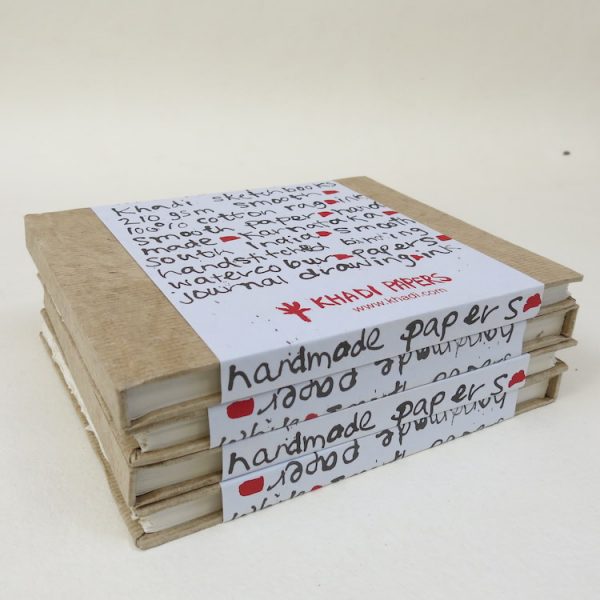 Khadi sketchbooks
210 gsm smooth
100% cotton rag
smooth paper hand
made Karnataka
South India smooth
handstitched binding
watercolour papers
journal drawing ink
KHADI PAPERS
www.khadi.com
handmade papers
handmade
paper
handmade papers
handmade
paper